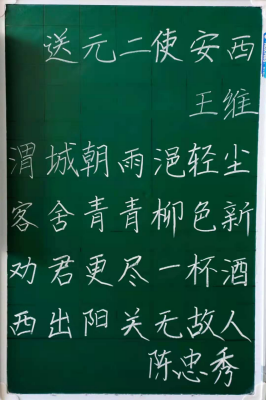 送元二使安西
王维
渭城朝雨浥轻尘
客舍青青柳色新
劝君更尽一杯酒
西出阳关无故人
陈忠秀